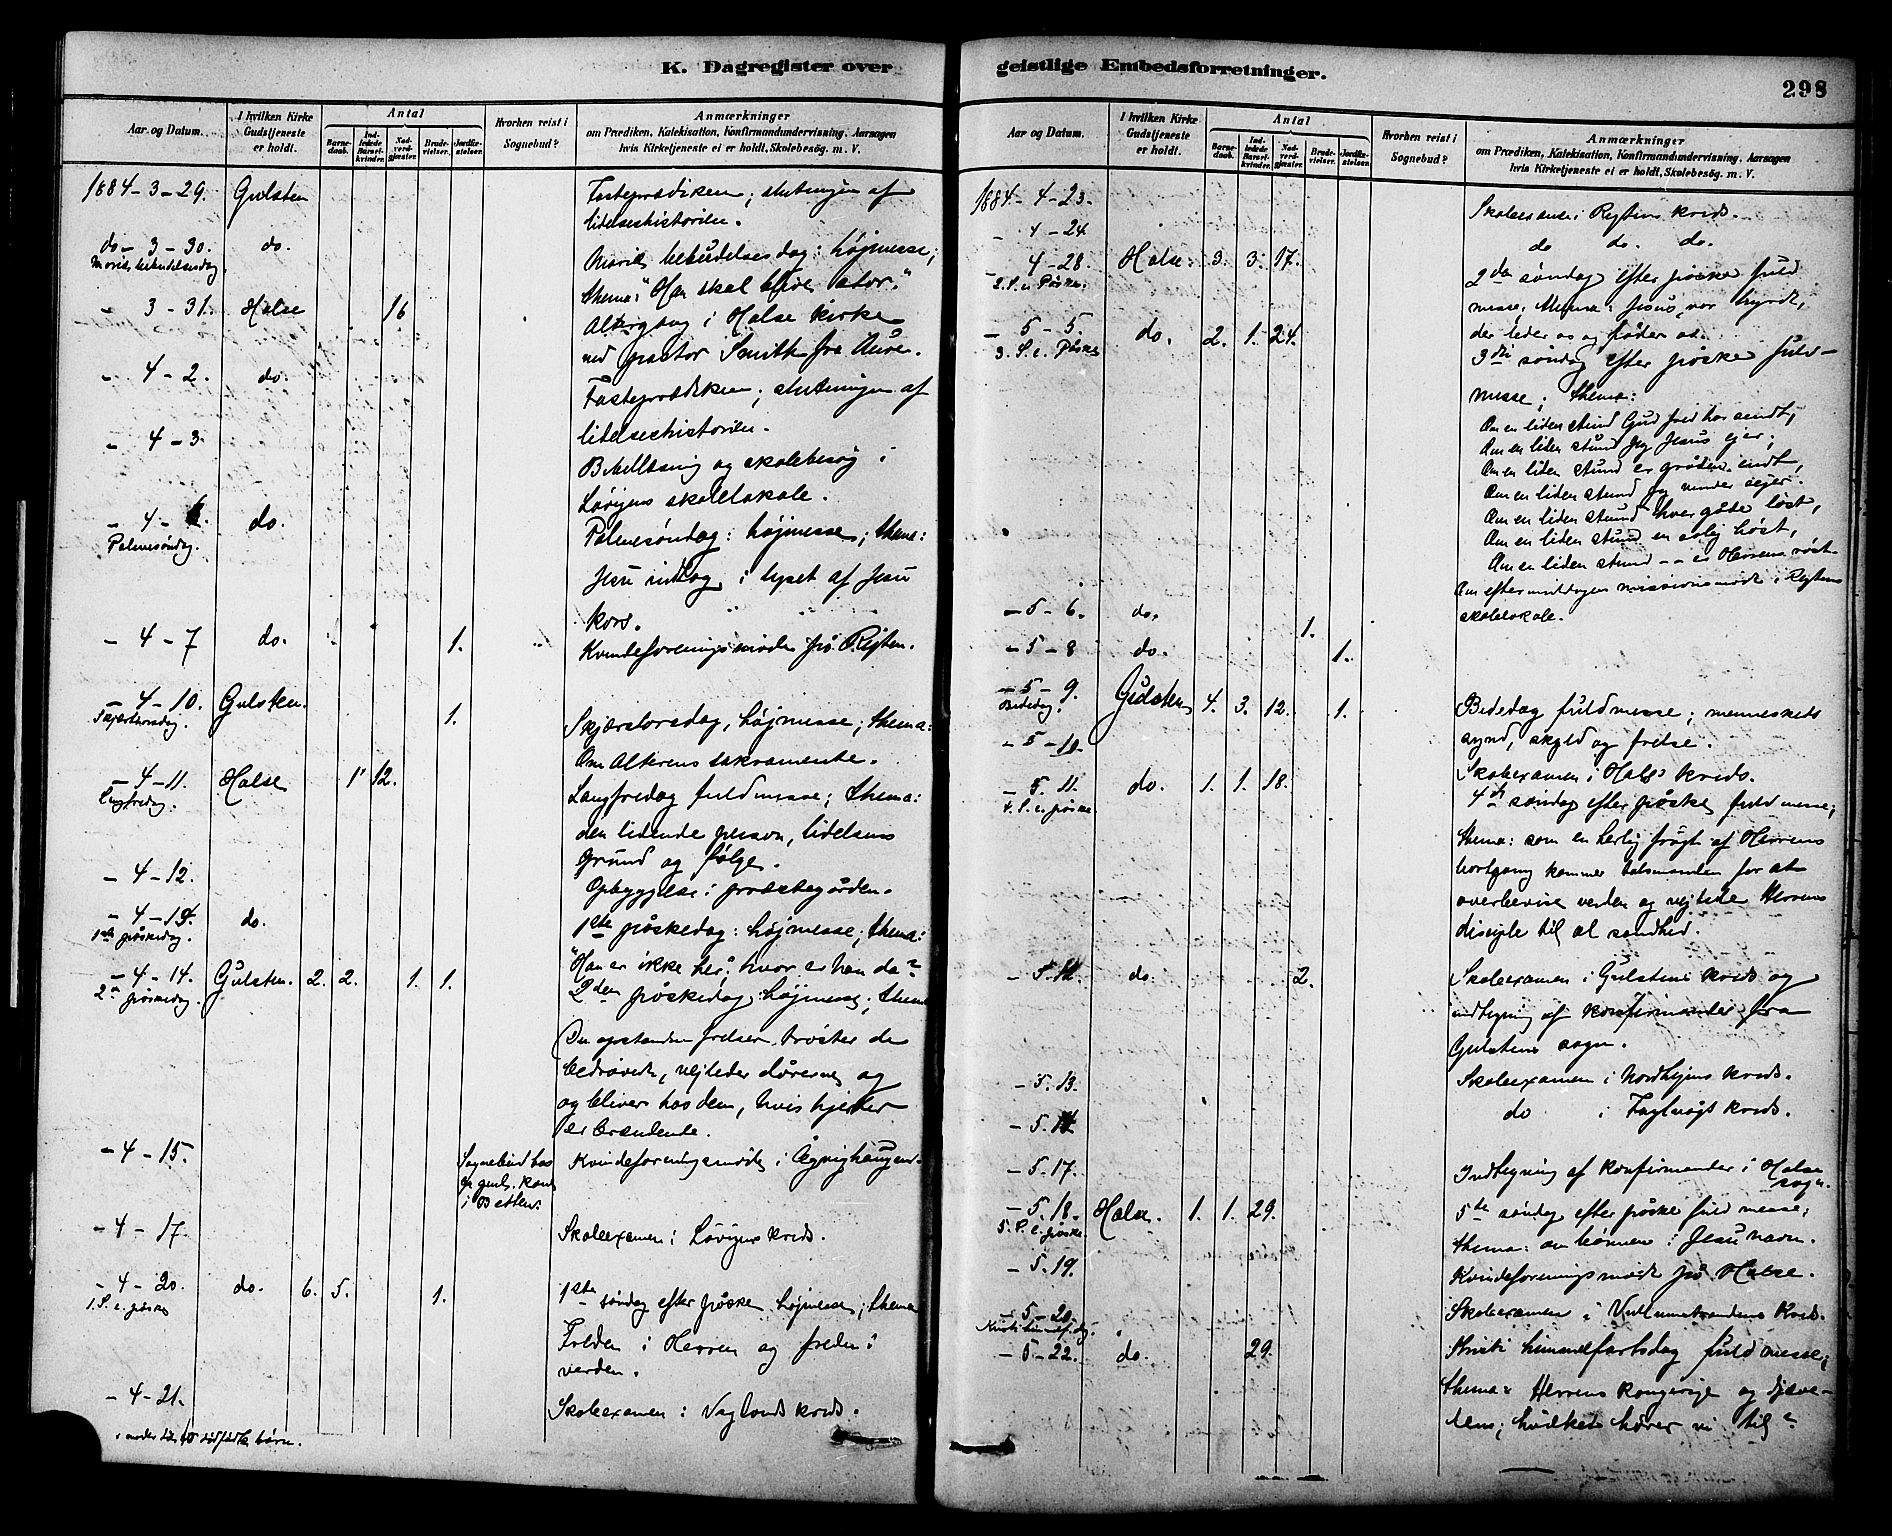 K. Dagregister over
Aar og Datum.
I hvilken Kirke Gudstjeneste er holdt.
Antal
Barnedaab.
Indledede Barselkvinder.
Nadverdgjæster.
Brudevielser.
Jordfæstelser.
Hvorhen reist i Sognebud?
Anmærkninger
om Prædiken, Katekisation, Konfirmandundervisning, Aarsagen
hvis Kirketjeneste ei er holdt, Skolebesøg. m. V.
1884 - 3 - 29. Gulsten Fasteprædiken; slutningen af
lidelseshistorien.
do - 3 - 30. do. Mariæ bebudelsesdag: højmesse;
Mariæ bebudelsesdag.
thema: "Han skal blive stor."
- 3 - 31. Halse 16 Altergang i Halse kirke
ved pastor Smith fra Aure.
- 4 - 2. do. Fasteprædiken; slutningen af
lidelseshistorien.
- 4 - 3. Bibellæsning og skolebesøg i
skolelokale.
- 4 - 6. do. Palmesøndag: højmesse; thema:
Palmesøndag.
Jesu indtog i lyset af Jesu
kors.
- 4 - 7 do. 1. Kvindeforeningsmøde på Rejten.
- 4 - 10. Gulsten. 1. Skjærtorsdag, højmesse; thema:
Skjærtorsdag.
Om Alterens sakramente.
- 4 - 11. Halse 1 12. Langfredag fuldmesse; thema:
Langfredag.
den lidende person, lidelsens
grund og følge.
- 4 - 12. Opbyggelse i præstegården.
- 4 - 13. do. 1ste påskedag: højmesse; thema:
1ste påskedag.
"Han er ikke her", hvor er han da?
- 4 - 14. Gulsten. 2. 2. 1. 1. 2den påskedag: højmesse; thema
2den påskedag
Den opstandne frelser trøster de
bedrøvede, vejleder dårerne og
og bliver hos dem, hvis hjerter
er brændende.
- 4 - 15. Sognebud hos i Betten. Kvindeforeningsmøde i Ågvighaugen.
- 4 - 17. Skoleexamen i kreds.
- 4 - 20. do. 6. 5. 1. 1ste søndag efter påske højmesse; thema
1. S. e. påske
Freden i Herren og freden i
verden.
- 4 - 21. Skoleexamen i Vaglands kreds.
dødfødte børn.
geistlige Embedsforretninger.
298
Aar og Datum.
I hvilken Kirke Gudstjeneste er holdt.
Antal
Barnedaab.
Indledede Barselkvinder.
Nadverdgjæster.
Brudevielser.
Jordfæstelser.
Hvorhen reist i Sognebud?
Anmærkninger
om Prædiken, Katekisation, Konfirmandundervisning, Aarsagen
hvis Kirketjeneste ei er holdt, Skolebesøg. m. V.
1884 - 4 - 23. Skoleexamen i Rejtens kreds.
- 4 - 24 do do. do.
- 4 - 28. Halse. 3. 3. 17. 2den søndag efter påske fuld
2. S. e. Påske.
messe, thema: Jesus, vor hyrde,
der leder os og føder os.
- 5 - 5. do. 2. 1. 24. 3die søndag efter påske fuld-
3. S. e. Påske
messe; thema:
Om en liden stund Gud fred har sendt,
Om en liden stund jeg Jesus ejer;
Om en liden stund er gråden endt,
Om en liden stund jeg vinder sejer.
Om en liden stund hver gåde løst,
Om en liden stund en evig høst,
Om en liden stund -- er Herrens røst
Om eftermiddagen missionsmøde i Rejtens
skolelokale.
- 5 - 6. do. 1.
- 5 - 8 do. 1.
- 5 - 9. Gulsten 4. 3. 12. 1. Bededag fuldmesse; menneskets
Bededag.
synd, skyld og frelse.
- 5 - 10. Skoleexamen i Halse kreds.
- 5. 11. do. 1. 1. 18. 4de søndag efter påske fuldmesse;
4. S. e. påske
thema: som en herlig frugt af Herrens
bortgang kommer talsmanden for at
overbevise verden og vejlede Herrens
disciple til al sandhed.
- 5. 12. do. 2. Skoleexamen i Gulstens kreds og
indtegning af konfirmander fra
Gulstens sogn.
- 5. 13. Skoleexamen i kreds.
- 5. 14. do i Fuglvågs kreds.
- 5. 17. Indtegning af konfirmander i Halse
sogn.
- 5. 18. Halse. 1. 1. 29. 5te søndag efter påske fuldmesse;
5. S. e. påske
thema: om bønnen i Jesu navn.
- 5. 19. Kvindeforeningsmøde på Halse.
- 5 - 20. Skoleexamen i kreds.
Kristi himmelf. dg.
- 5 - 22. do. 29. Kristi himmelfartsdag fuldmesse;
thema: Herrens kongerige og djæve-
lens; hvilket hører vi til?